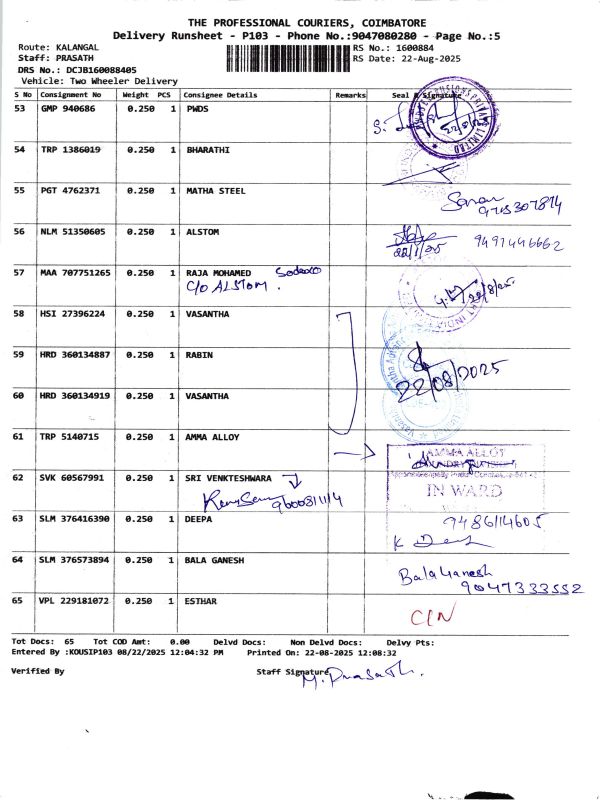 THE PROFESSIONAL COURIERS, COIMBATORE
Delivery Runsheet - P103 - Phone No.:9047080280 - Page No.:5
Route: KALANGAL
RS No.: 1600884
Staff: PRASATH
RS Date: 22-Aug-2025
DRS No.: DCJB160088405
Vehicle: Two Wheeler Delivery
S No Consignment No Weight PCS Consignee Details Remarks Seal & Signature
53 GMP 940686 0.250 1 PWDS
54 TRP 1386019 0.250 1 BHARATHI
55 PGT 4762371 0.250 1 MATHA STEEL
Saran
9715307894
56 NLM 51350605 0.250 1 ALSTOM
9491446662
57 MAA 707751265 0.250 1 RAJA MOHAMED Sodexo
C/O ALSTOM.
58 HSI 27396224 0.250 1 VASANTHA
59 HRD 360134887 0.250 1 RABIN
22/08/2025
60 HRD 360134919 0.250 1 VASANTHA
61 TRP 5140715 0.250 1 AMMA ALLOY
AMMA ALLOY
IN WARD
62 SVK 60567991 0.250 1 SRI VENKTESHWARA
63 SLM 376416390 0.250 1 DEEPA
9486114605
64 SLM 376573894 0.250 1 BALA GANESH
Bala Ganesh
9047333552
65 VPL 229181072 0.250 1 ESTHAR
Tot Docs: 65 Tot COD Amt: 0.00 Delvd Docs: Non Delvd Docs: Delvy Pts:
Entered By :KOUSIP103 08/22/2025 12:04:32 PM Printed On: 22-08-2025 12:08:32
Verified By
Staff Signature
M. Prasath.